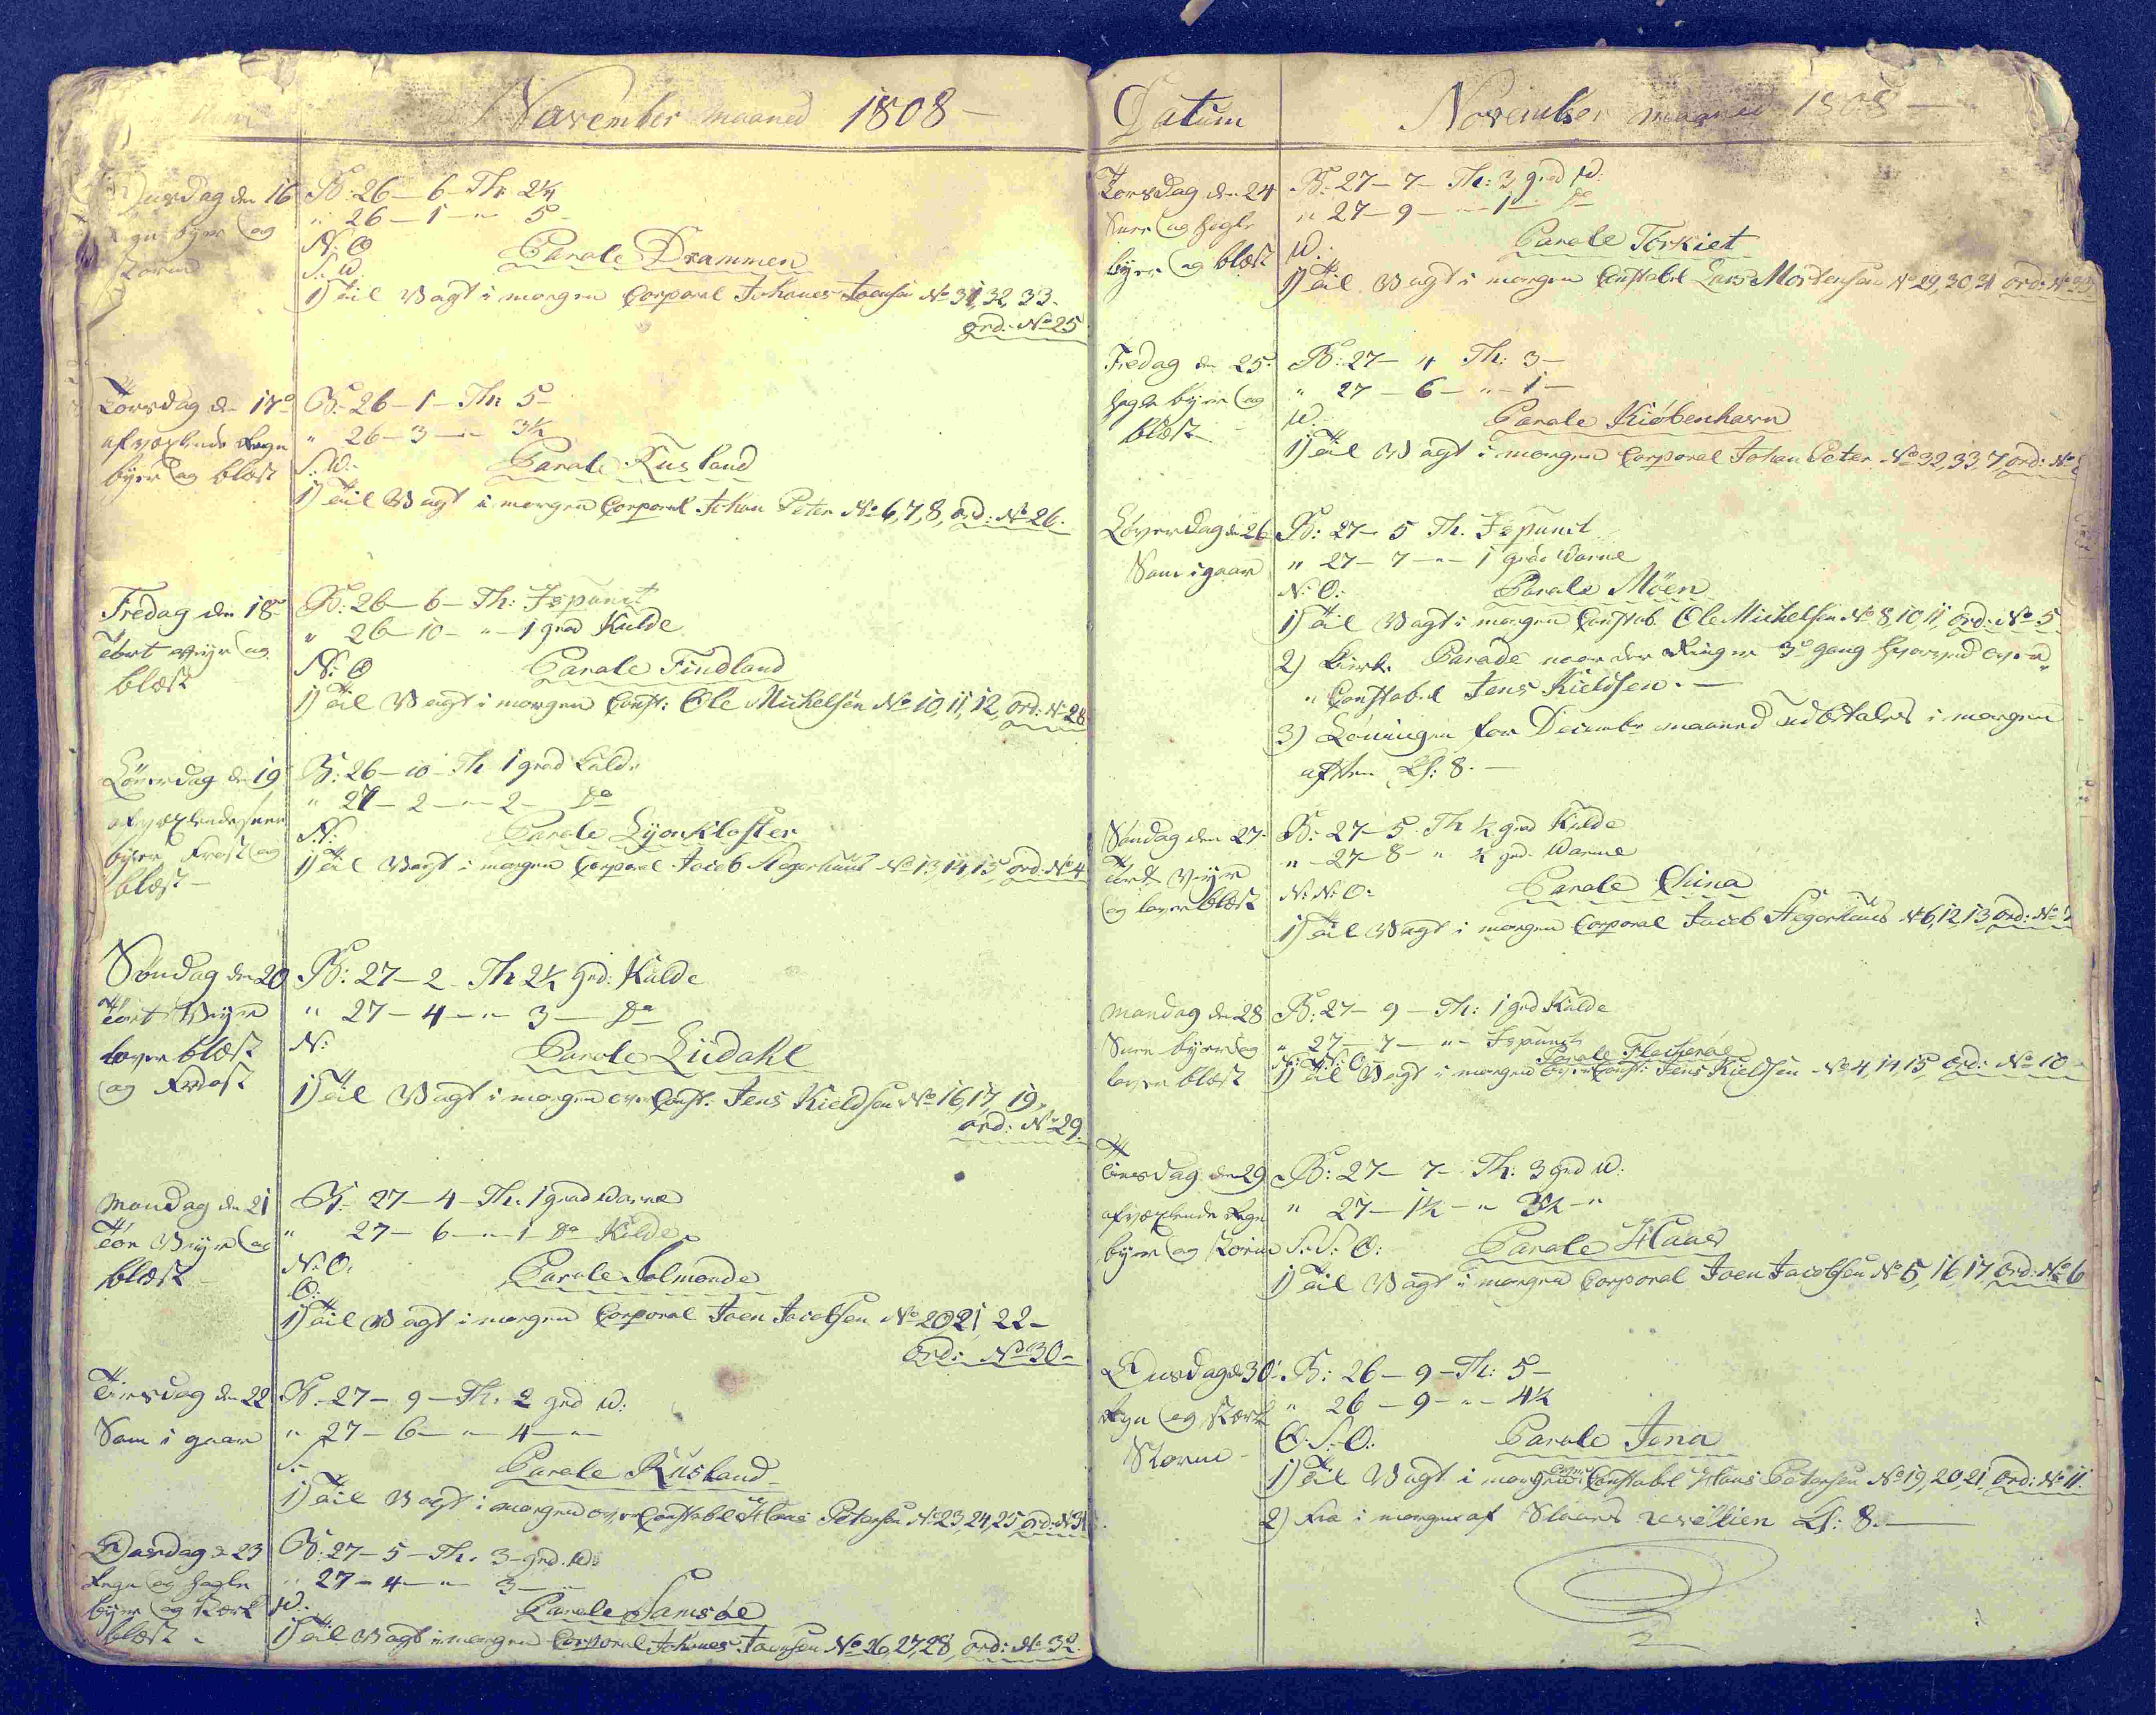 November maaned 1808 —
Onsdag den 16 B: 26 — 6 — Th: 2½
byer og " 26 — 1 — " 5 —
Storm N: O Parole Drammen
S: W.
1) Til Vagt i morgen Corporal Johanes Joensen No 31, 32, 33.
ord: No 25
Torsdag d. 17de B: 26 — 1 — Th: 5 —
afvexlende Regn " 26 — 3 — " 3½
byer og blæst S: W: Parole Rusland
1) Til Vagt i morgen Corporal Johan Peter No 6, 7, 8, ord: No 26.
Fredag den 18de B: 26 — 6 — Th: Ispunct
Tört veyr og " 26 — 10 — " — 1 grad Kulde
blæst N: O Parole Findland
1) Til Vagt i morgen Const: Ole Michelsen No 10, 11, 12, ord: No 28
Löverdag den 19 B: 26 — 10 — Th 1 grad Kulde
afvexlende snee " 27 — 2 — " — 2 — Do
byer, Frost og N: Parole Lyonkloster
blæst — 1) Til Vagt i morgen Corporal Jacob Hegerhuus No 13, 14, 15, ord: No 4
Söndag den 20 B: 27 — 2 — Th 2½ grd: Kulde
Tört Veyr " 27 — 4 — " — 3 — Do
laver blæst N: Parole Liidahl
og Frost 1) Til Vagt i morgen over Const: Jens Kieldsen No 16, 17, 19,
ord: No 29.
Mandag den 21 B: 27 — 4 — Th: 1 grad Varme
Tör Veyr og " 27 — 6 — " — 1 Do Kulde
blæst — N: O. Parole Solmonde
O:
1) Til Vagt i morgen Corporal Joen Jacobsen No 20, 21, 22 —
Ord: No 30 —
Tirsdag den 22 B: 27 — 9 — Th: 2 grd W:
Som i gaar " 27 — 6 — " — 4 — "
S: — Parole Rusland
1) Til Vagt i morgen over Constabel Hans Petersen No 23, 24, 25 ord: No 31
Onsdag d 23 B: 27 — 5 — Th: 3 — grd. W:
Regn og Hagle " 27 — 4 — " 3 —
byer og stærk W: Parole Samsöe
blæst — 1) Til Vagt i morgen Corporal Johanes Joensen No 26, 27, 28, ord: No 32.
Datum November maaned 1808 —
Torsdag den 24 B: 27 — 7 — Th: 3 grad W:
Snee og hagle " 27 — 9 — " — 1 — Do
byer og blæst W: Parole Törkiet
1) Til Vagt i morgen Constabel Lars Mortensen No 29, 30, 31 ord: No 33
Fredag den 25. B: 27 — 4 Th: 3 —
Hagle byer og " 27 — 6 — " — 1 —
blæst — W: Parole Kiöbenhavn
1) Til Vagt i morgen Corporal Johan Peter No 32, 33, 7 ord: No
Löverdag d 26 B: 27 — 5 Th: Ispunct
Som igaar " 27 — 7 — " — 1 grad Varme
N: O: Parole Möen
1) Til Vagt i morgen Constab. Ole Michelsen No 8 10 11 ord: No 5
2) Kirke Parade naar der Ringer 3de gang hvorved over
" Constabel Jens Kieldsen. —
3) Löningen for Decembr maaned udbetales i morgen
aften Kl: 8. —
Söndag den 27. B: 27 — 5 Th ½ grd Kulde
Tört Veyr " 27 — 8 — " ½ grd. Varme
og laver blæst N: N: O: Parole China
1) Til Vagt i morgen Corporal Jacob Hegerhuus No 6, 12, 13, ord: No
Mandag den 28 B: 27 — 9 — Th: 1 grd Kulde
Snee byer og " 27 — 7 — " — Ispunct
laver blæst N: N: O — Parole Fleckeröe
1) Til Vagt i morgen over Const: Jens Kieldsen No 4, 14 15, ord: No 10 —
Tirsdag den 29 B: 27 — 7 — Th: 3 grd W:
afvexlende Regn " 27 — 1½ — " 3½ — "
byer og Storm S: S: O: Parole Haas
1) Til Vagt i morgen Corporal Joen Jacobsen No 5, 16 17, ord: No 6
Onsdag d 30 B: 26 — 9 — Th: 5 —
Regn og stærk " 26 — 9 — " — 4½
Storm — O: S: O: Parole Jena
1) Til Vagt i morgen over Constabel Hans Petersen No 19, 20, 21, ord: No 11.
2) Fra i morgen af Slaaes revellien Kl: 8. —